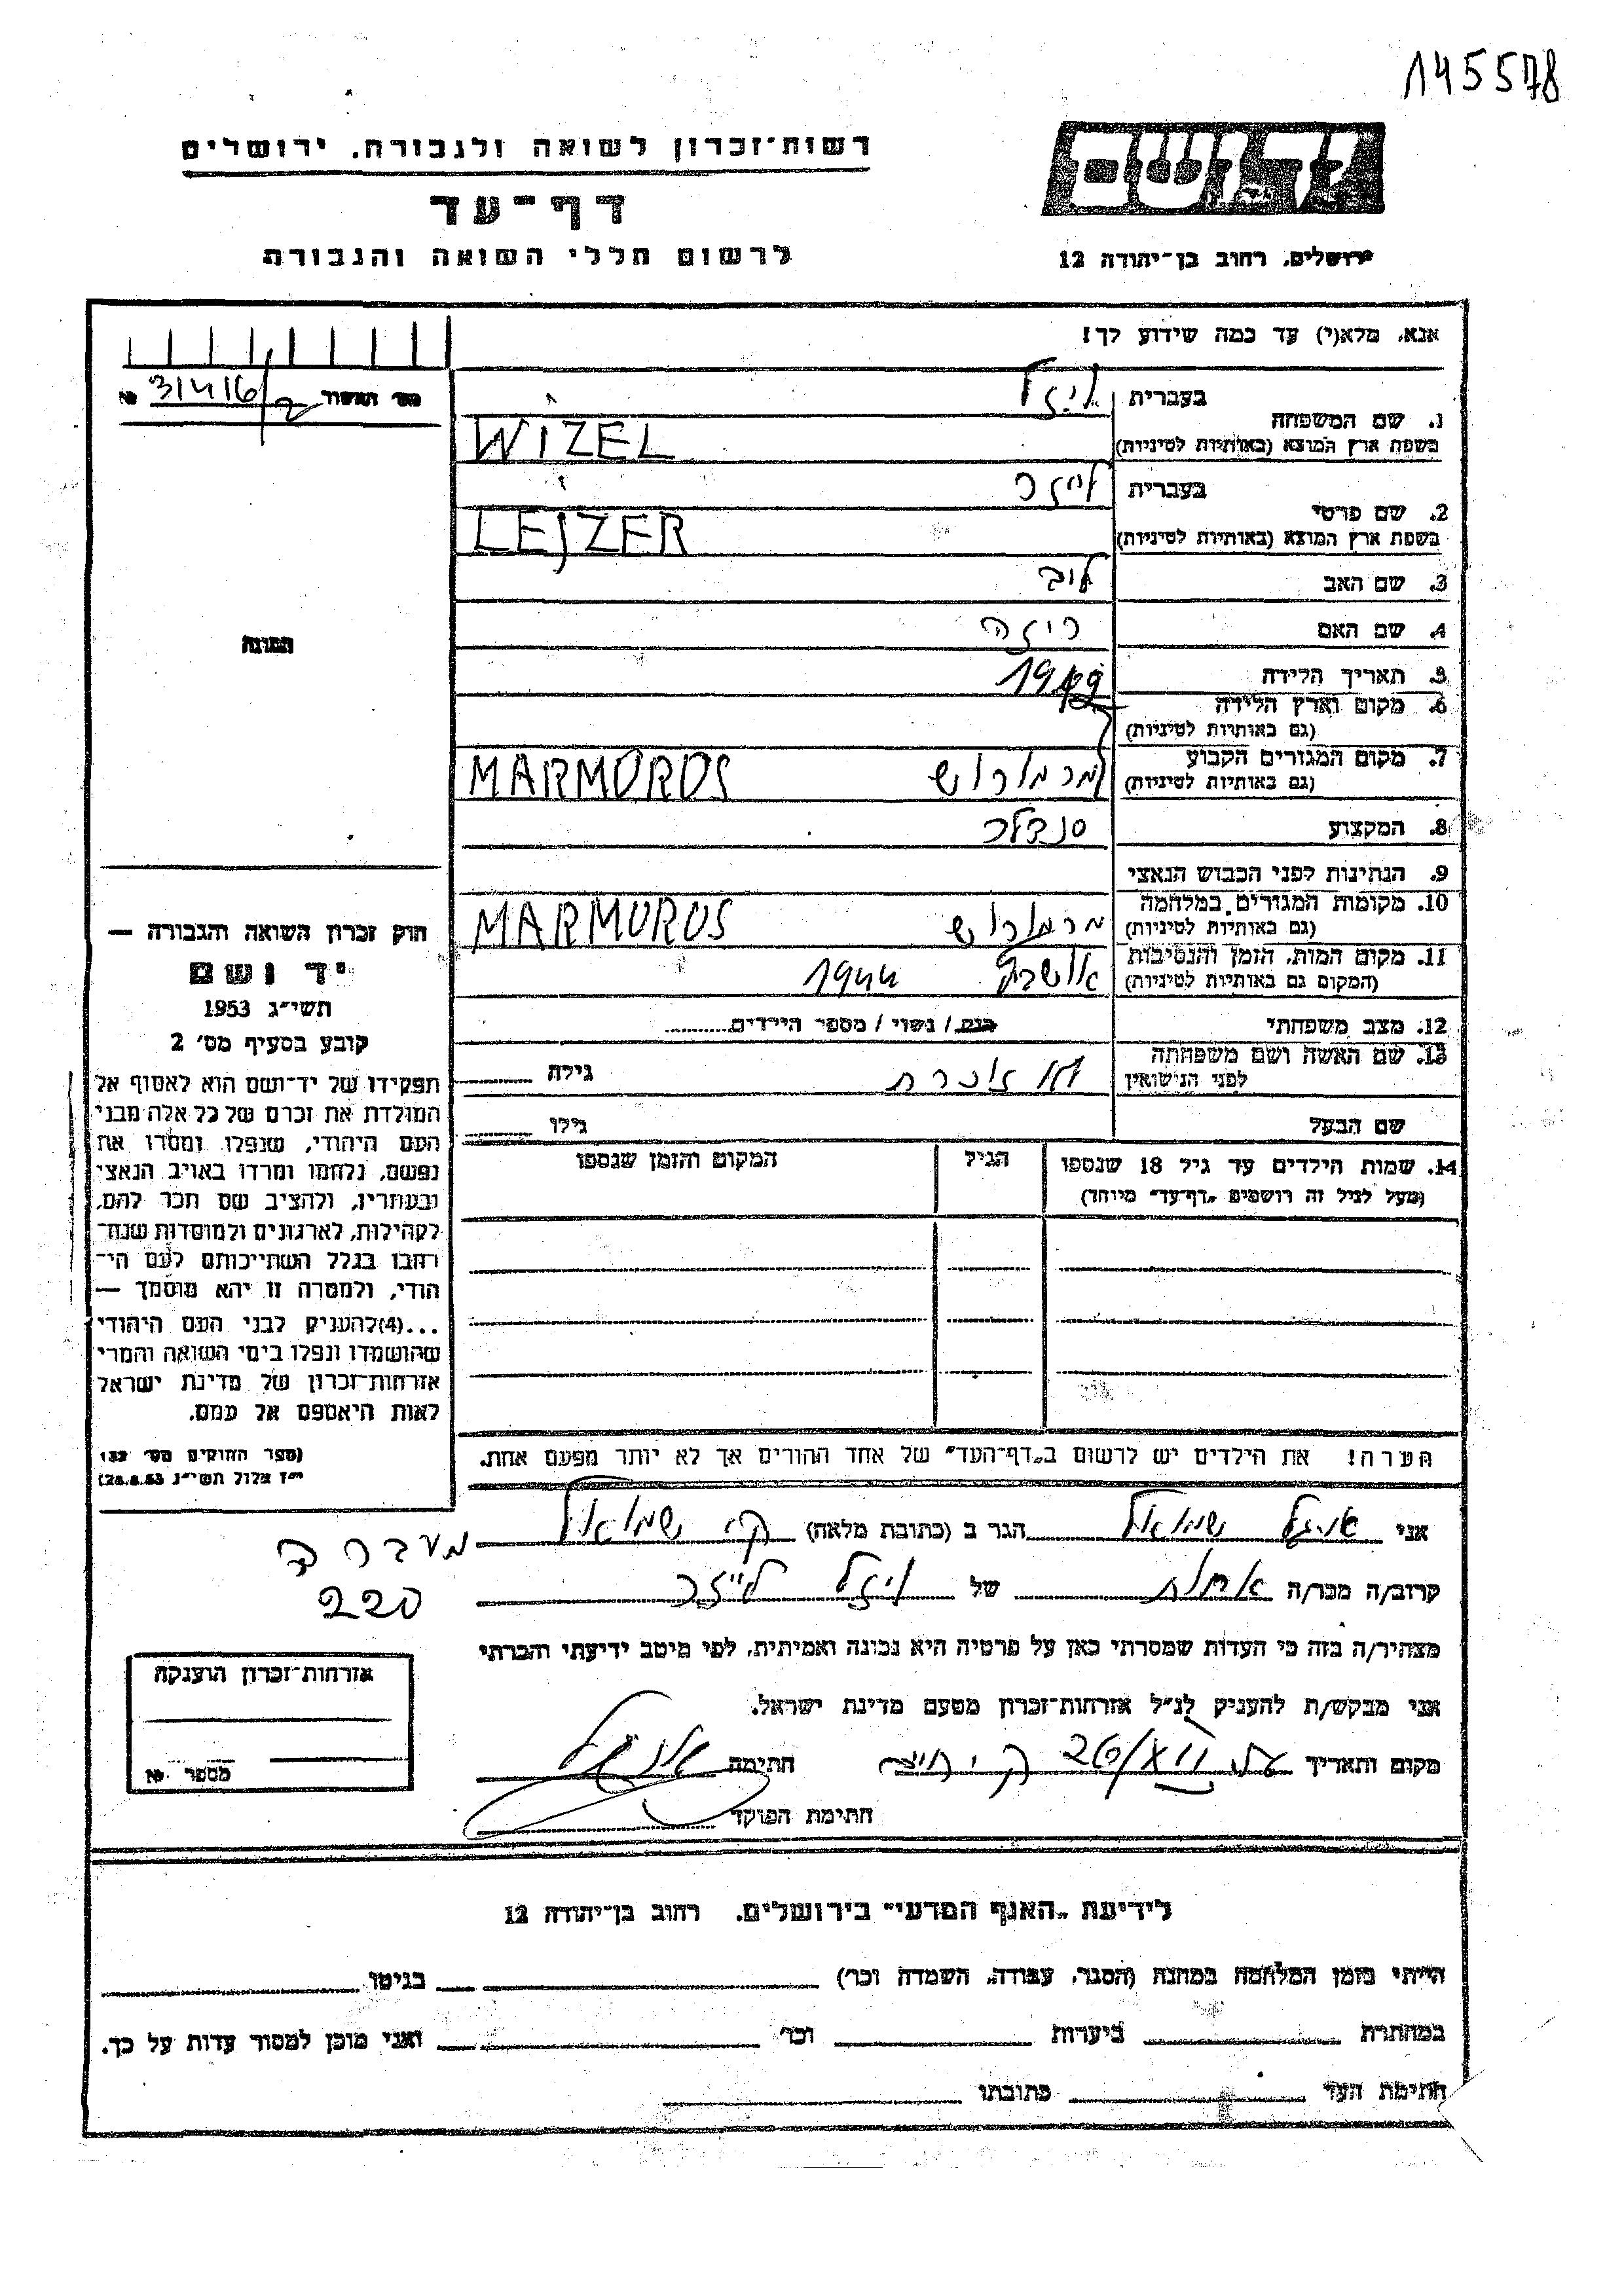 145578
רשות־זכרון לשואה ולגבורה. ירושלים
דף־עד
לרשום חללי השואה והגבורה
יד ושם
ירושלים. רחוב בן־יהודה 12
אנא, מלא(י) עד כמה שידוע לך!
מס׳ האשור № 31416/2
1. שם המשפחה
בעברית ויזל
בשפת ארץ המוצא (באותיות לטיניות) WIZEL
2. שם פרטי
בעברית לייזר
בשפת ארץ המוצא (באותיות לטיניות) LEJZER
3. שם האב לוב
4. שם האם ריזה
5. תאריך הלידה
6. מקום וארץ הלידה
(גם באותיות לטיניות)
7. מקום המגורים הקבוע
(גם באותיות לטיניות) מרמורוש MARMOROS
8. המקצוע סנדלר
9. הנתינות לפני הכבוש הנאצי
10. מקומות המגורים במלחמה
(גם באותיות לטיניות) מרמורוש MARMOROS
11. מקום המות, הזמן והנסיבות
(המקום גם באותיות לטיניות) 1944
12. מצב משפחתי רווק / נשוי / מספר הילדים
13. שם האשה ושם משפחתה
לפני הנישואין גילה
שם הבעל גילו
14. שמות הילדים עד גיל 18 שנספו הגיל המקום והזמן שנספו
(מעל לגיל זה רושמים „דף־עד״ מיוחד)
הערה! את הילדים יש לרשום ב„דף־העד״ של אחד ההורים אך לא יותר מפעם אחת.
התמונה
חוק זכרון השואה והגבורה —
יד ושם
תשי״ג 1953
קובע בסעיף מס׳ 2
תפקידו של יד־ושם הוא לאסוף אל
המולדת את זכרם של כל אלה מבני
העם היהודי, שנפלו ומסרו את
נפשם, נלחמו ומרדו באויב הנאצי
ובעוזריו, ולהציב שם וזכר להם,
לקהילות, לארגונים ולמוסדות שנח־
רבו בגלל השתייכותם לעם הי־
הודי, ולמטרה זו יהא מוסמך —
...(4)להעניק לבני העם היהודי
שהושמדו ונפלו בימי השואה והמרי
אזרחות־זכרון של מדינת ישראל
לאות היאספם אל עמם.
(ספר החוקים מס׳ 132
י״ז אלול תשי״ג 28.8.53)
אני שמואל הגר ב (כתובת מלאה) קר׳ שמואל
מעברה
220
קרוב/ה מכר/ה של ויזל לייזר
מצהיר/ה בזה כי העדות שמסרתי כאן על פרטיה היא נכונה ואמיתית, לפי מיטב ידיעתי והכרתי
אני מבקש/ת להעניק לנ״ל אזרחות־זכרון מטעם מדינת ישראל.
מקום ותאריך חתימה
חתימת הפוקד
אזרחות־זכרון הוענקה
מספר №
לידיעת „האגף המדעי״ בירושלים. רחוב בן־יהודה 12
הייתי בזמן המלחמה במחנה (הסגר, עבודה, השמדה וכו׳) בגיטו
במחתרת ביערות וכו׳ ואני מוכן למסור עדות על כך.
חתימת העד כתובתו